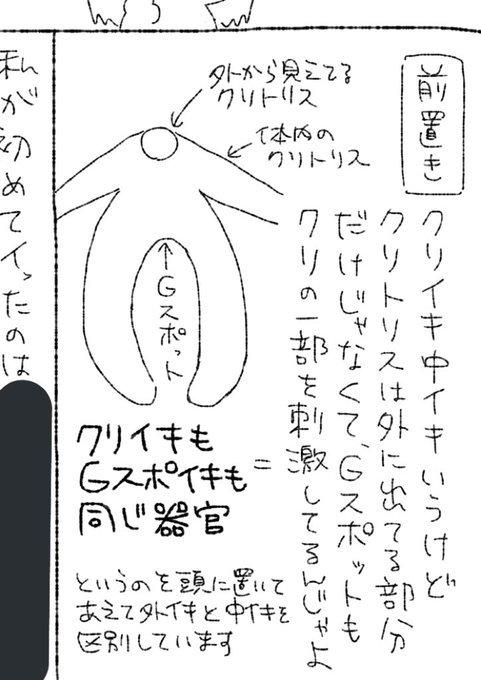 前置き
クリイキ中イキいうけど
クリトリスは外に出てる部分
だけじゃなくて、Gスポットも
クリの一部を刺激してるんじゃよ
外から見えてる
クリトリス
体内の
クリトリス
↑Gスポット
クリイキも
Gスポイキも
同じ器官
=
というのを頭に置いて
あえて外イキと中イキを
区別しています
私が初めてイったのは